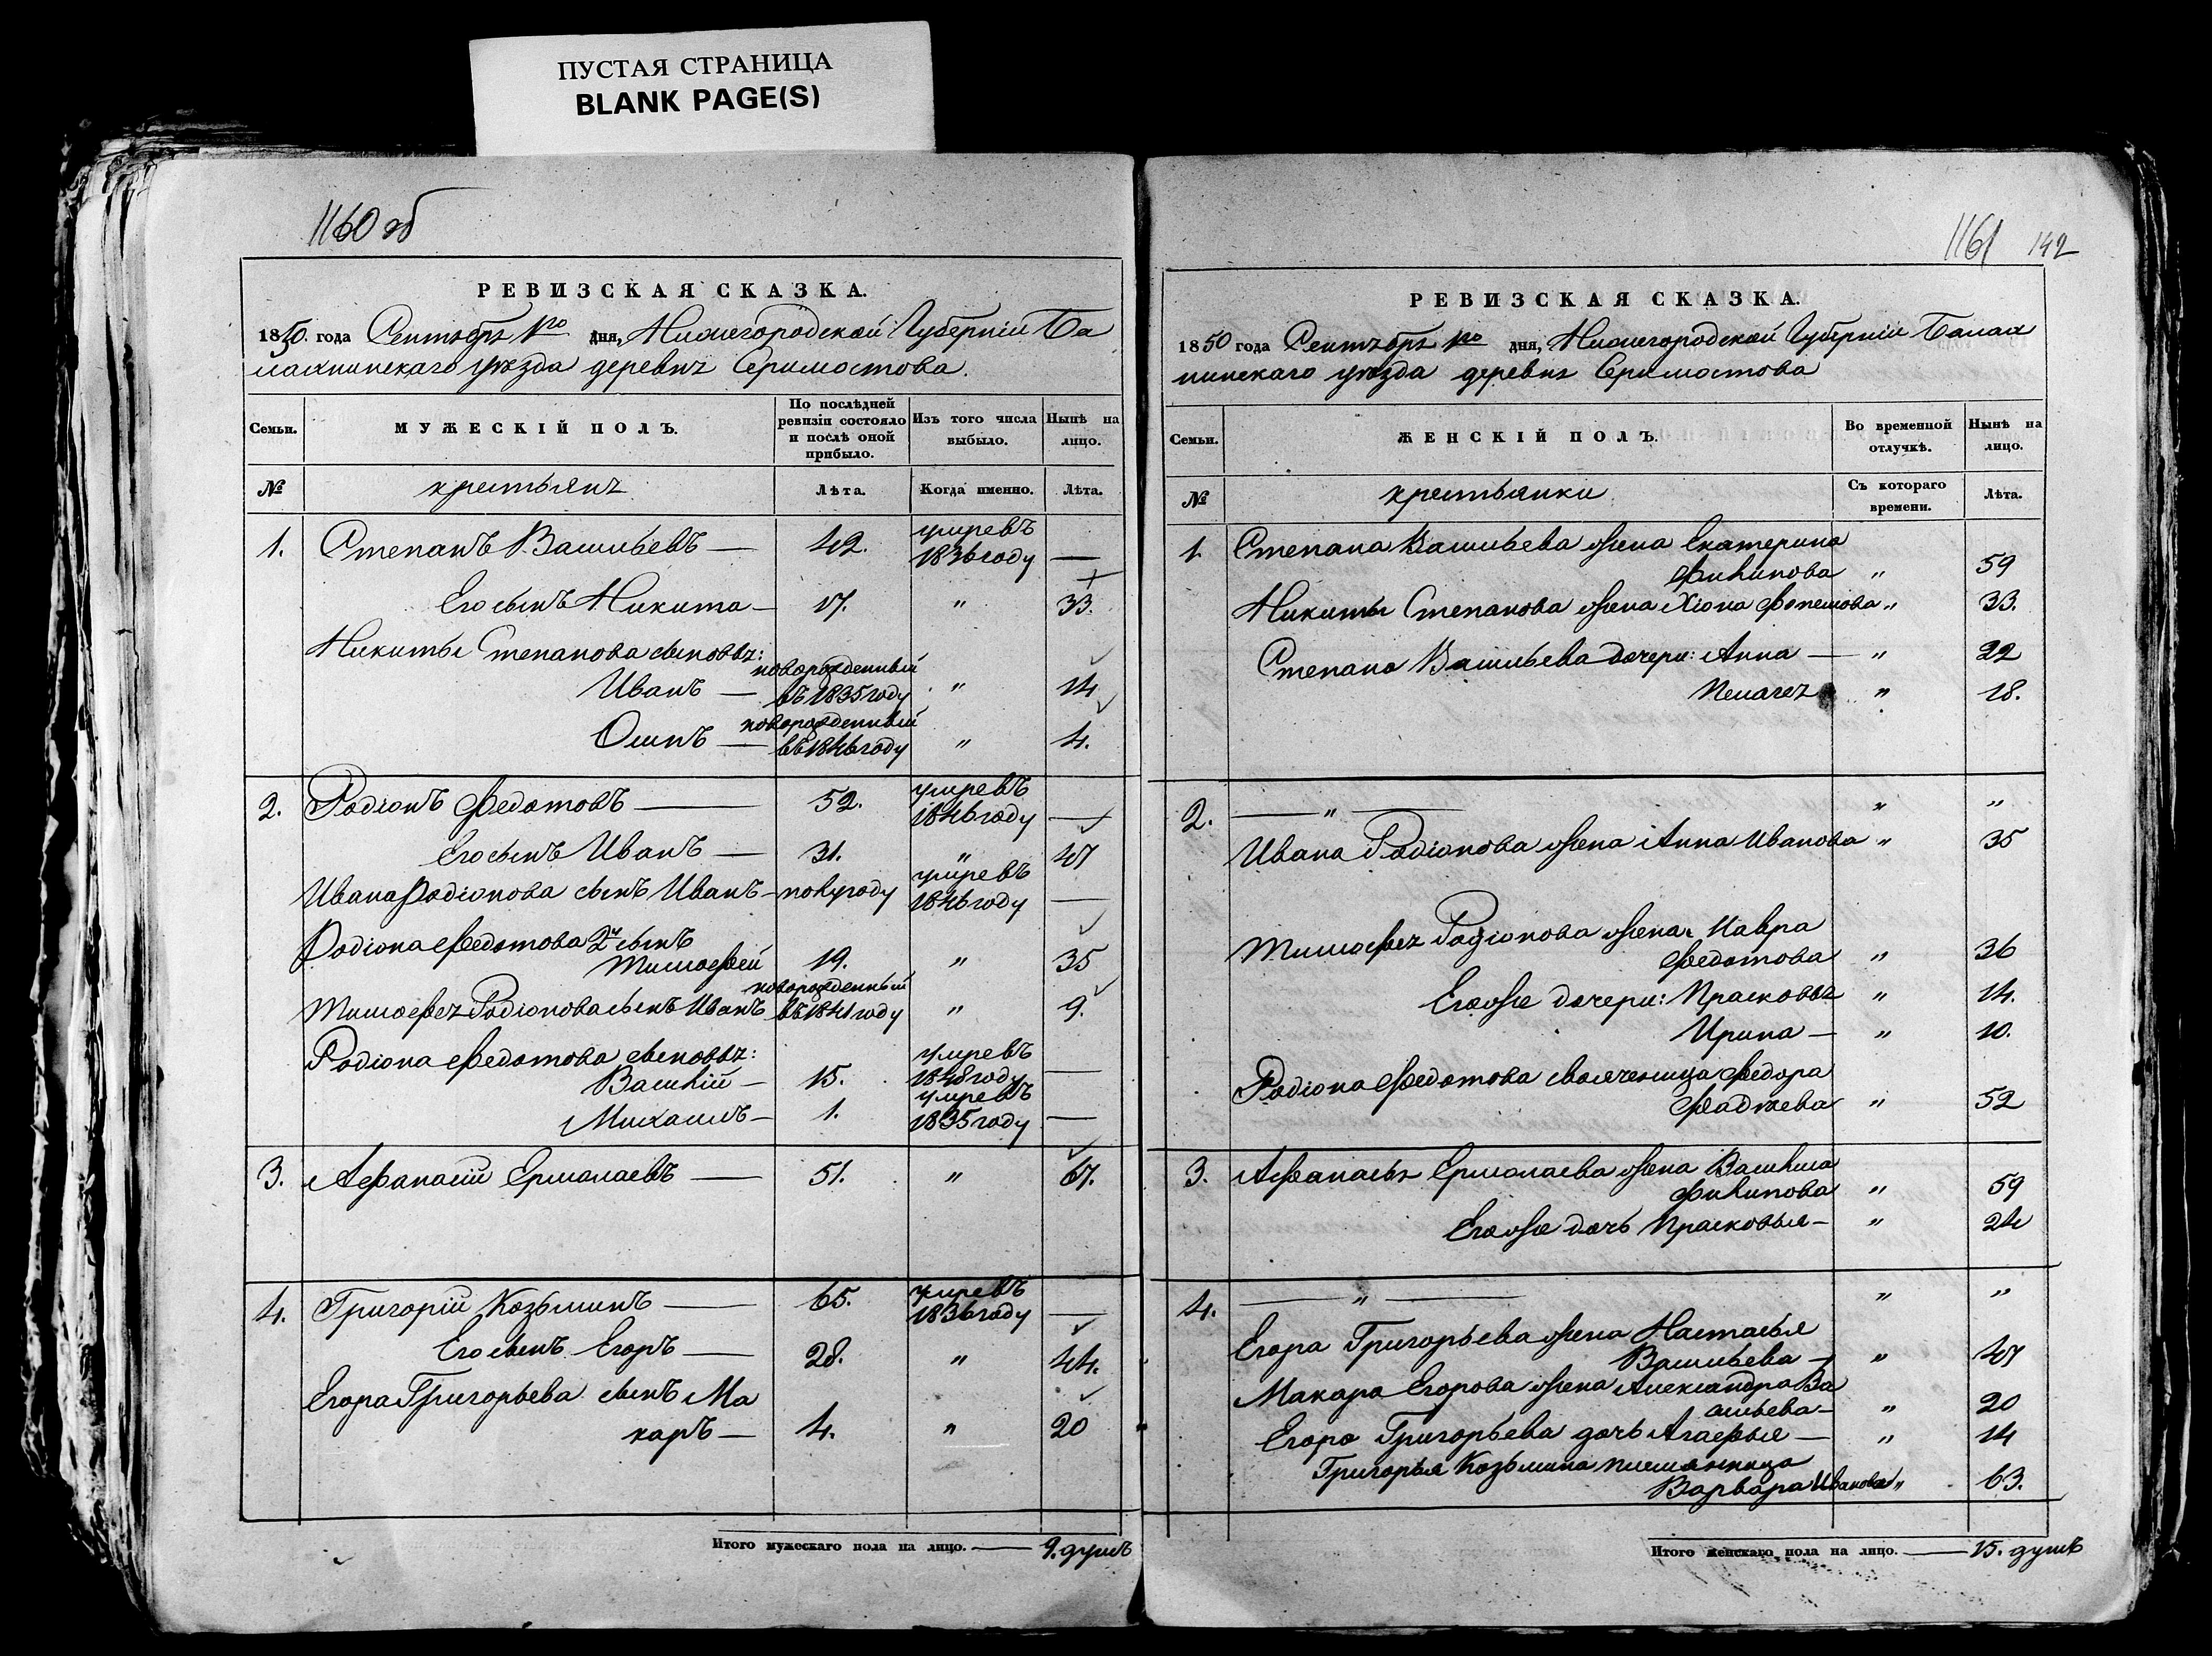 ПУСТАЯ СТРАНИЦА
BLANK PAGE(S)
1160 об
РЕВИЗСКАЯ СКАЗКА.
1850. года Сентября 1го дня, Нижегородской Губерніи Ба
лахнинскаго уѣзда деревни Ермостова.
Семьи.
МУЖЕСКІЙ ПОЛЪ.
По послѣдней ревизіи состояло и послѣ оной прибыло.
Изъ того числа выбыло.
Нынѣ на лицо.
№ крестьянъ Лѣта. Когда именно. Лѣта.
1. Степанъ Васильевъ — 42. умревъ 1836 году —
Его сынъ Никита — 17. " 33.
Никиты Степанова сыновья:
Иванъ — новорожденный въ 1835 году " 14
Осипъ — новорожденный въ 1846 году " 4.
2. Родіонъ Федотовъ — 52. умревъ 1846 году —
Его сынъ Иванъ — 31. " 47
Ивана Родіонова сынъ Иванъ — полугоду умревъ 1846 году —
Родіона Федотова 2й сынъ
Тимофей 19. " 35
Тимофея Родіонова сынъ Иванъ новорожденный въ 1841 году " 9.
Родіона Федотова сыновья:
Василій — 15. умревъ 1848 году —
Михаилъ — 1. умревъ 1835 году —
3. Афанасій Ермолаевъ — 51. " 67.
4. Григорій Козьминъ — 65. умревъ 1836 году —
Его сынъ Егоръ — 28. " 44.
Егора Григорьева сынъ Ма
каръ — 4. " 20
Итого мужескаго пола на лицо. — 9. душъ
1161 142
РЕВИЗСКАЯ СКАЗКА.
1850 года Сентября 1го дня, Нижегородской Губерніи Балах
нинскаго уѣзда деревни Ермостова
Семьи.
ЖЕНСКІЙ ПОЛЪ.
Во временной отлучкѣ.
Нынѣ на лицо.
№ крестьянки Съ котораго времени. Лѣта.
1. Степана Васильева жена Екатерина
Филипова " 59
Никиты Степанова жена Хіона " 33.
Степана Васильева дочери: Анна — " 22
Пелагея " 18.
2. — " — " "
Ивана Родіонова жена Анна Иванова " 35
Тимофея Родіонова жена Мавра
Федотова " 36
Егоже дочери: Прасковья " 14.
Ирина — " 10.
Родіона Федотова свояченица Федора
Фадѣева " 52
3. Афанасья Ермолаева жена Василиса
Филипова " 59
Егоже дочь Прасковья — " 24
4. — " — " "
Егора Григорьева жена Настасья
Васильева — " 47
Макара Егорова жена Александра Ва
сильева — " 20
Егора Григорьева дочь Агафья — " 14
Григорья Козьмина племянница
Варвара Иванова " 63.
Итого женскаго пола на лицо. — 15. душъ